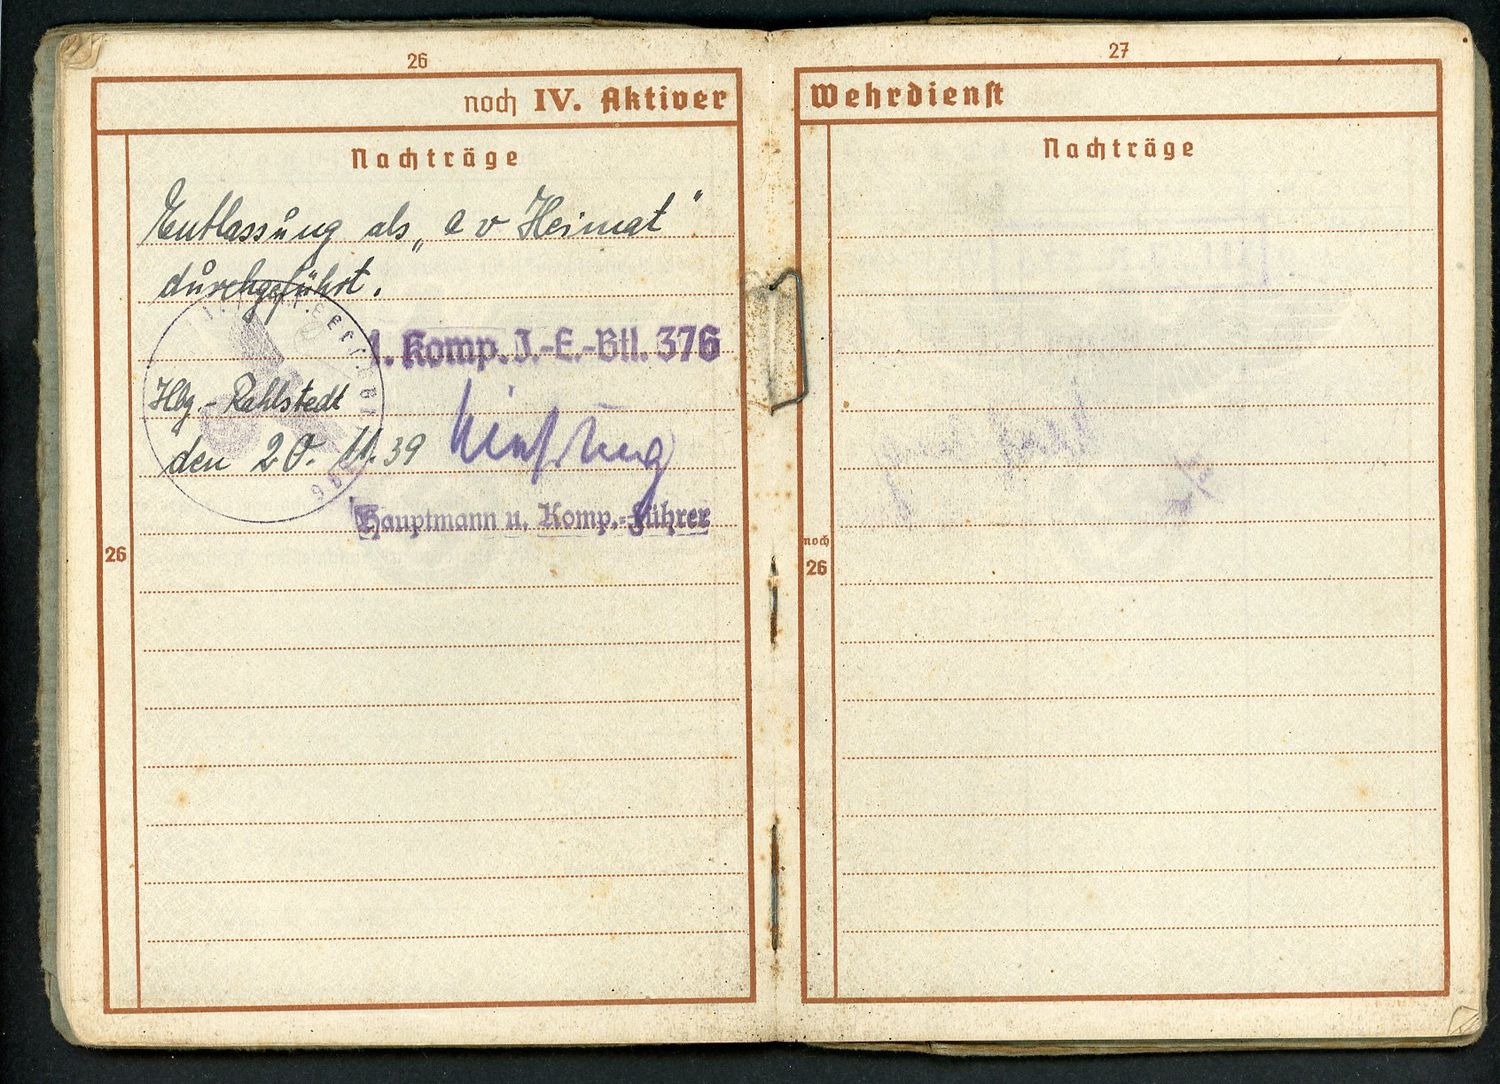 26
noch IV. Aktiver
Nachträge
Entlassung als „a v Heimat"
durchgeführt.
1. Komp. J.-E.-Btl. 376
Hbg.-Rahlstedt
den 20. 11. 39
Hauptmann u. Komp.-Führer
26
27
Wehrdienst
Nachträge
noch
26